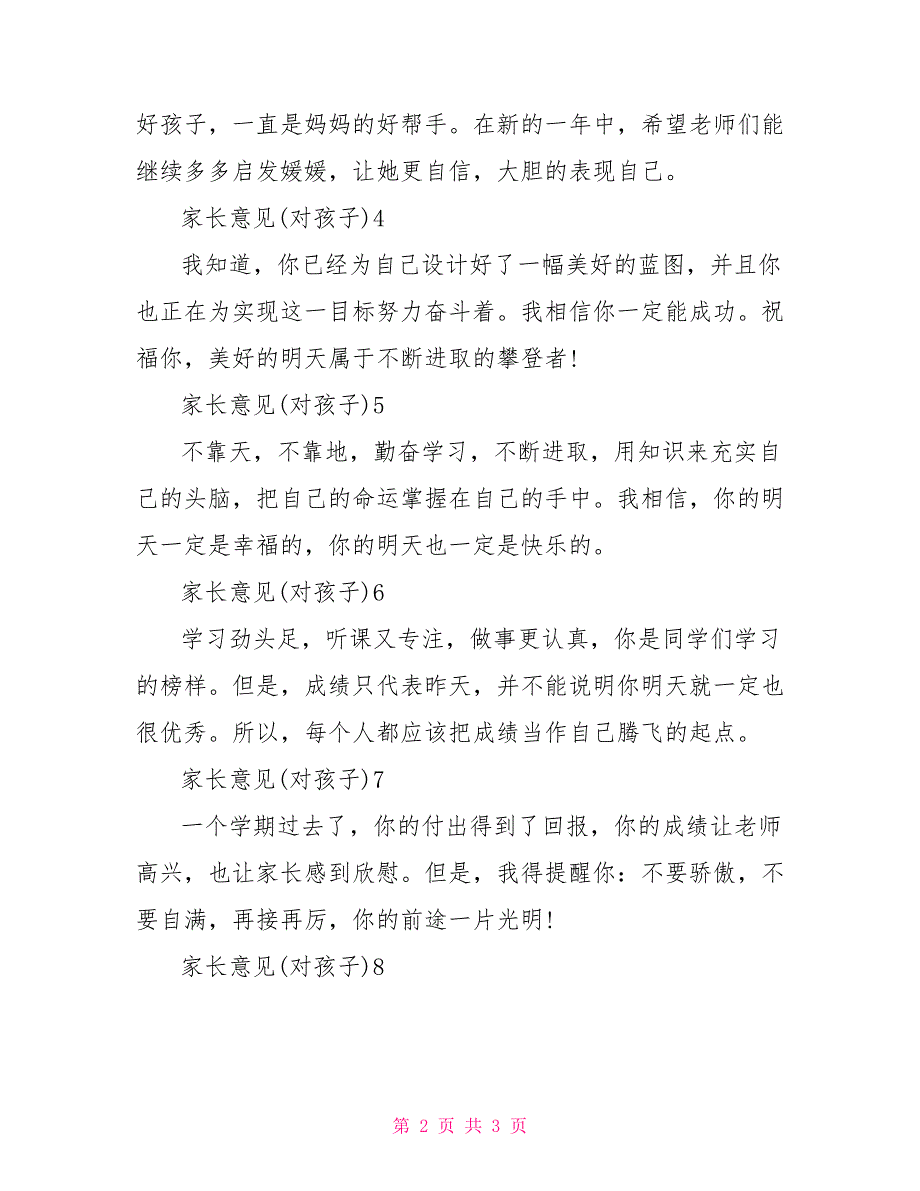 好孩子，一直是妈妈的好帮手。在新的一年中，希望老师们能
继续多多启发媛媛，让她更自信，大胆的表现自己。
家长意见(对孩子)4
我知道，你已经为自己设计好了一幅美好的蓝图，并且你
也正在为实现这一目标努力奋斗着。我相信你一定能成功。祝
福你，美好的明天属于不断进取的攀登者!
家长意见(对孩子)5
不靠天，不靠地，勤奋学习，不断进取，用知识来充实自
己的头脑，把自己的命运掌握在自己的手中。我相信，你的明
天一定是幸福的，你的明天也一定是快乐的。
家长意见(对孩子)6
学习劲头足，听课又专注，做事更认真，你是同学们学习
的榜样。但是，成绩只代表昨天，并不能说明你明天就一定也
很优秀。所以，每个人都应该把成绩当作自己腾飞的起点。
家长意见(对孩子)7
一个学期过去了，你的付出得到了回报，你的成绩让老师
高兴，也让家长感到欣慰。但是，我得提醒你：不要骄傲，不
要自满，再接再厉，你的前途一片光明!
家长意见(对孩子)8
第 2 页 共 3 页